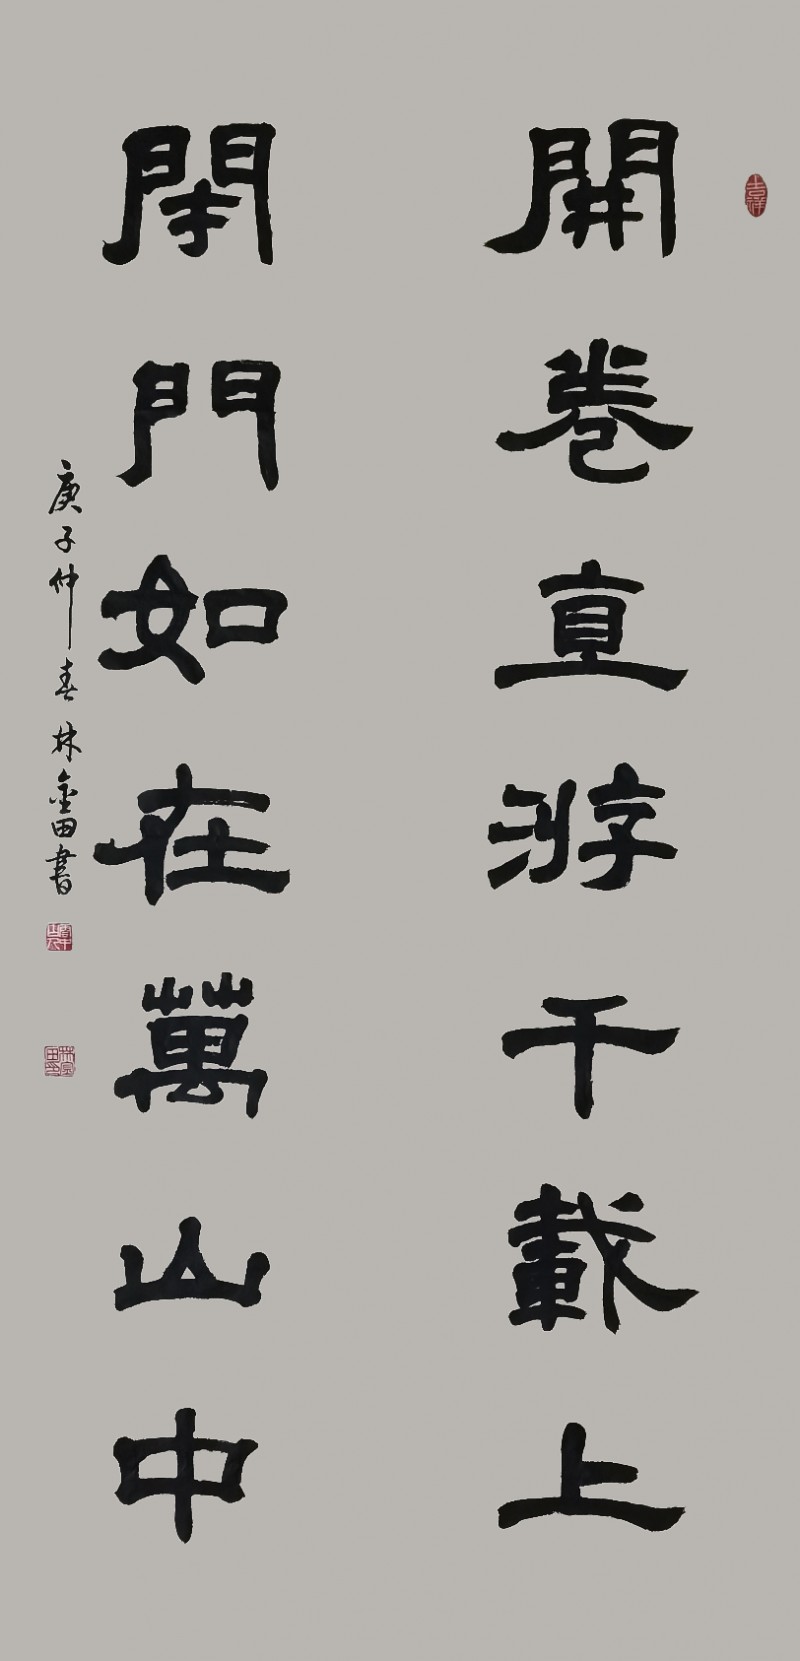 開卷直游千載上
閉門如在萬山中
庚子仲春林金田書
吉祥